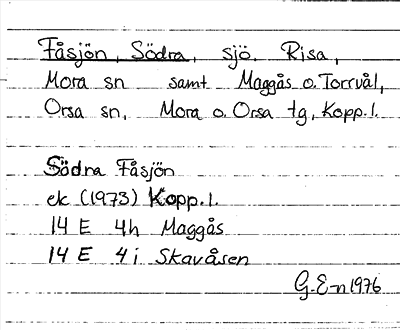 Fåsjön, Södra, sjö. Risa,
Mora sn samt Maggås o. Torrvål,
Orsa sn, Mora o. Orsa tg, Kopp. l.
Södra Fåsjön
ek (1973) Kopp. l.
14 E 4h Maggås
14 E 4i Skavåsen
G. E-n 1976